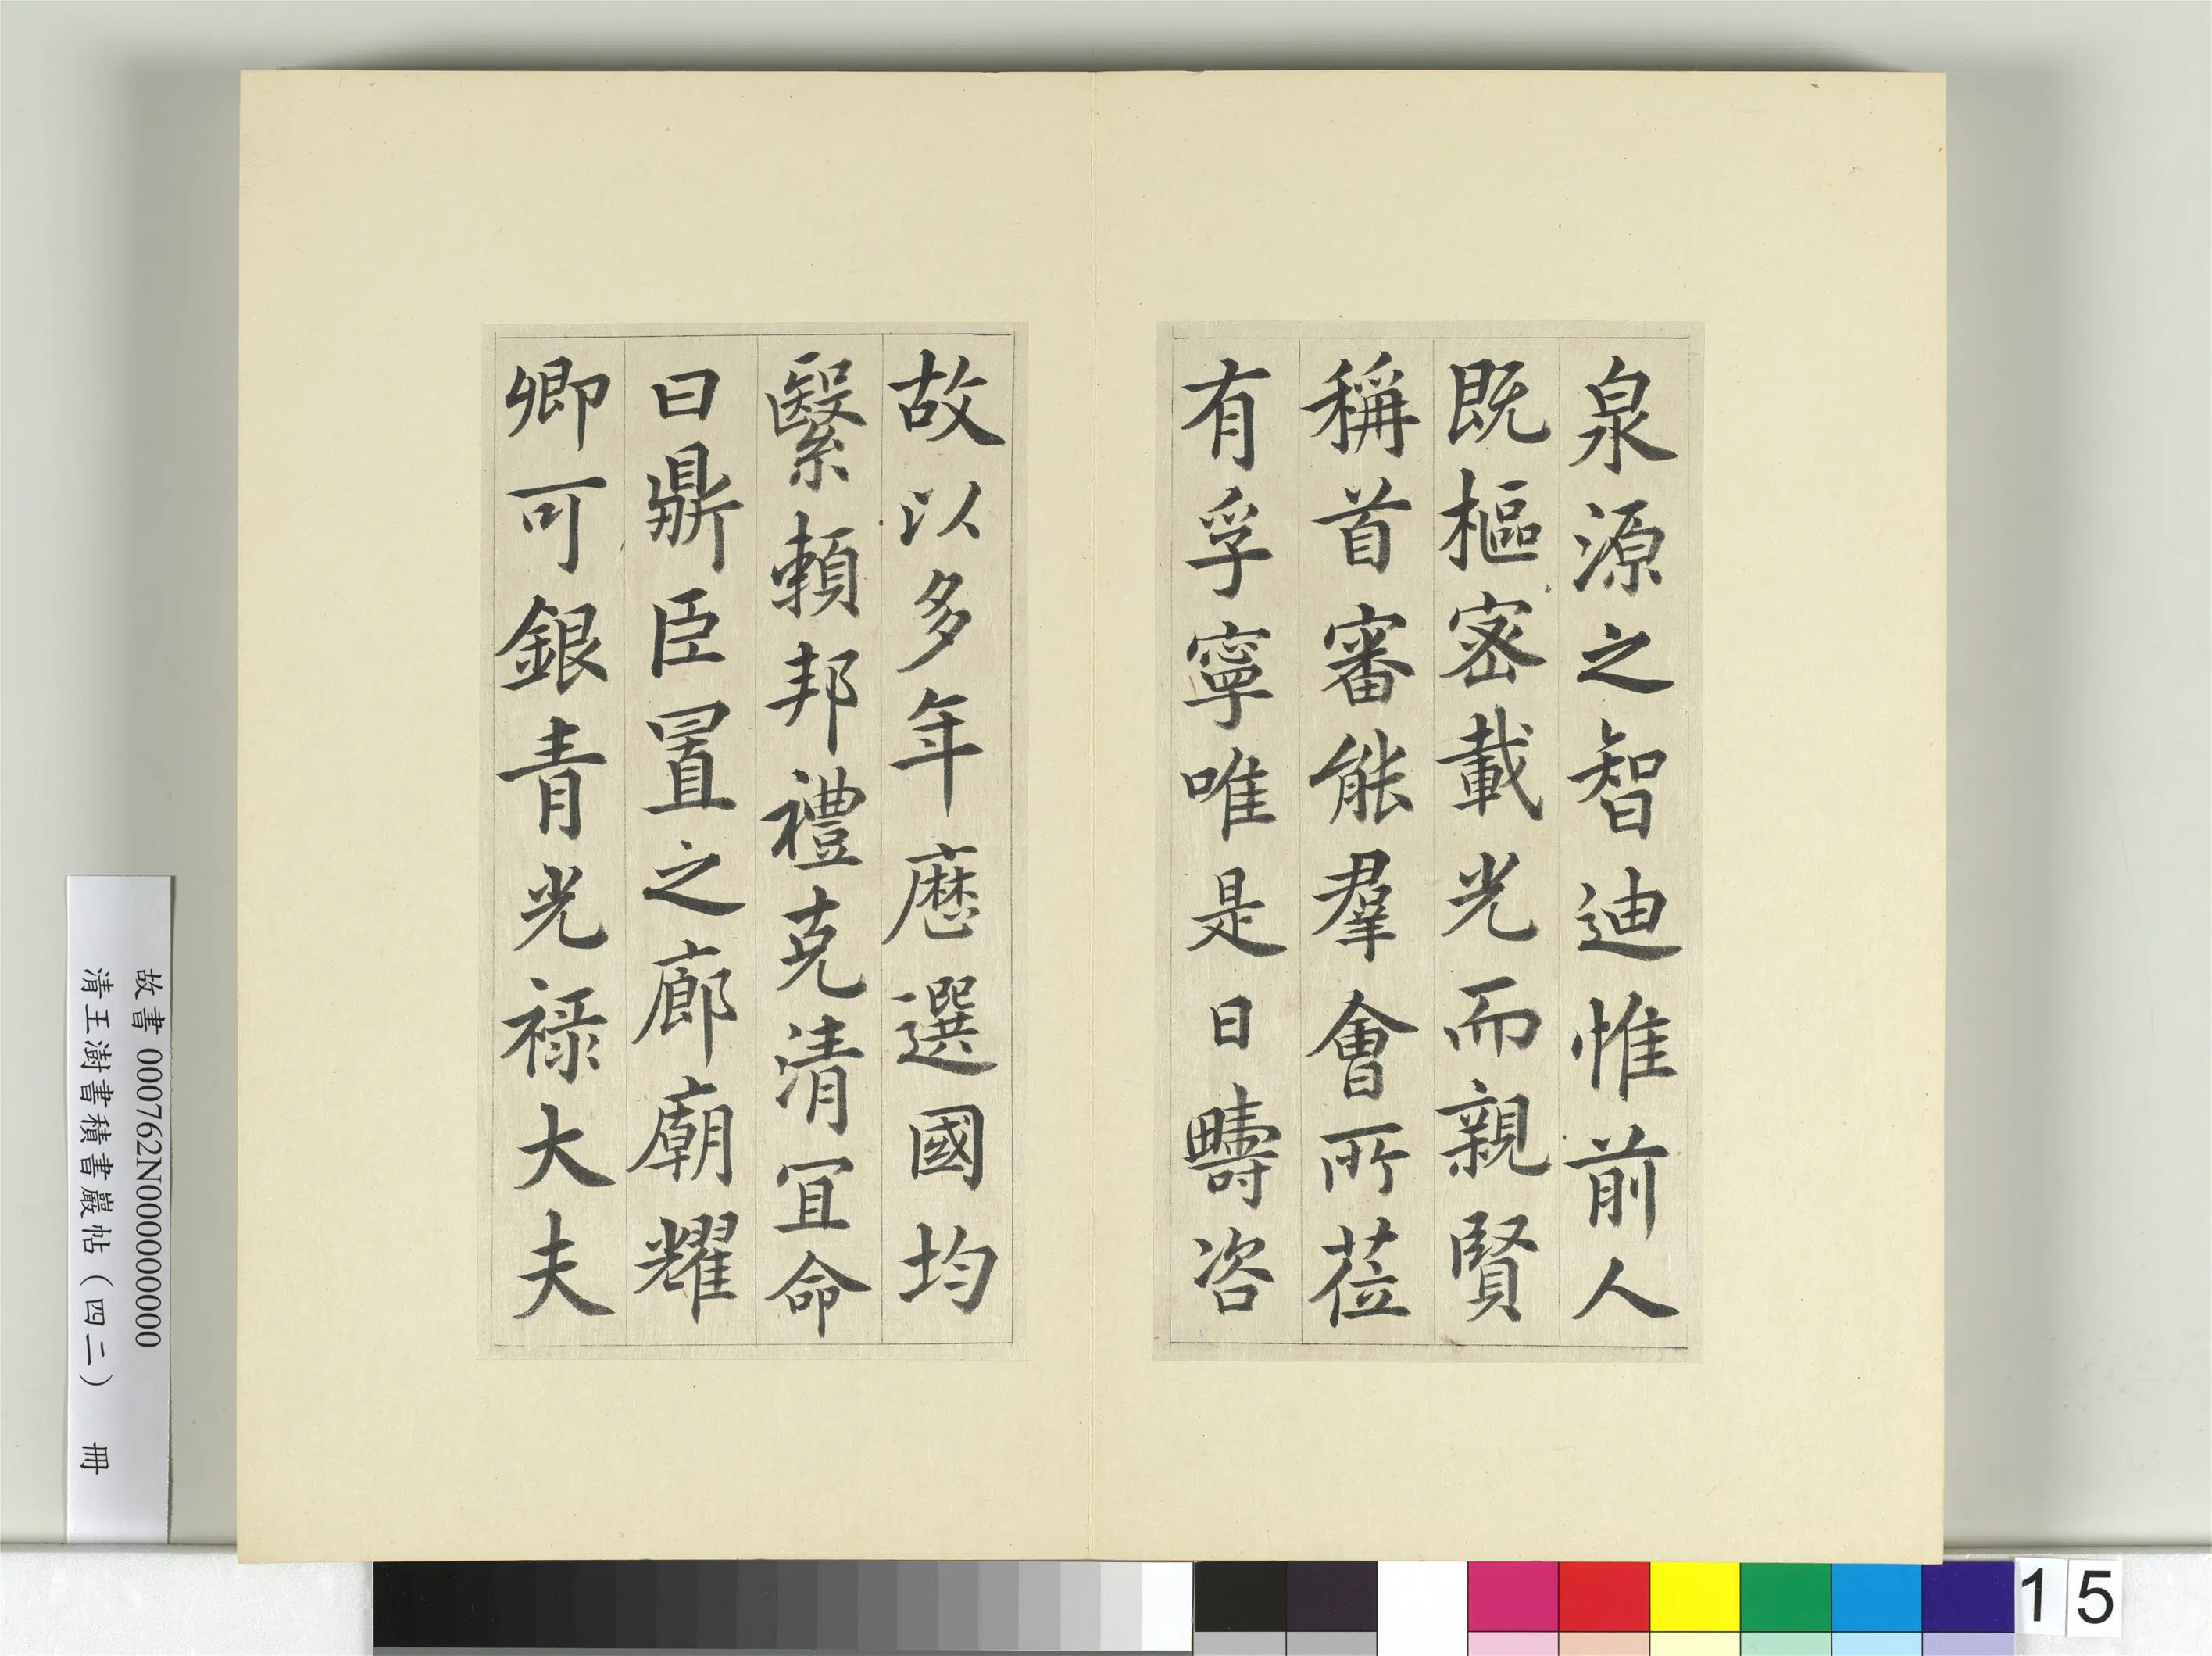 泉源之智迪惟前人
既樞密載光而親賢
稱首審能羣會所莅
有孚寧唯是日疇咨
故以多年歷選國均
繄賴邦禮克清宜命
曰鼎臣置之廊廟耀
卿可銀青光祿大夫
故書 000762N000000000
清王澍書積書巖帖（四二） 冊
15